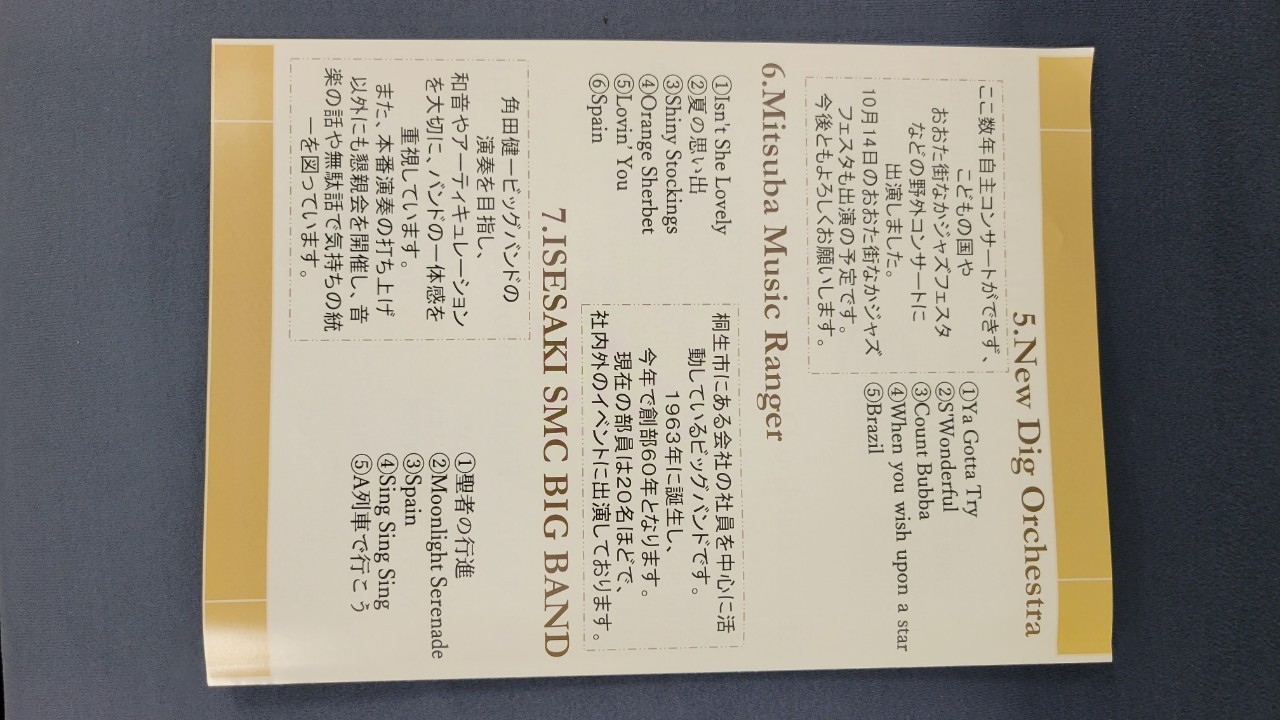 5.New Dig Orchestra
ここ数年自主コンサートができず、
こどもの国や
おおた街なかジャズフェスタ
などの野外コンサートに
出演しました。
10月14日のおおた街なかジャズ
フェスタも出演の予定です。
今後ともよろしくお願いします。
①Ya Gotta Try
②S'Wonderful
③Count Bubba
④When you wish upon a star
⑤Brazil
6.Mitsuba Music Ranger
①Isn't She Lovely
②夏の思い出
③Shiny Stockings
④Orange Sherbet
⑤Lovin' You
⑥Spain
桐生市にある会社の社員を中心に活
動しているビッグバンドです。
1963年に誕生し、
今年で創部60年となります。
現在の部員は20名ほどで、
社内外のイベントに出演しております。
7.ISESAKI SMC BIG BAND
角田健一ビッグバンドの
演奏を目指し、
和音やアーティキュレーション
を大切に、バンドの一体感を
重視しています。
また、本番演奏の打ち上げ
以外にも懇親会を開催し、音
楽の話や無駄話で気持ちの統
一を図っています。
①聖者の行進
②Moonlight Serenade
③Spain
④Sing Sing Sing
⑤A列車で行こう